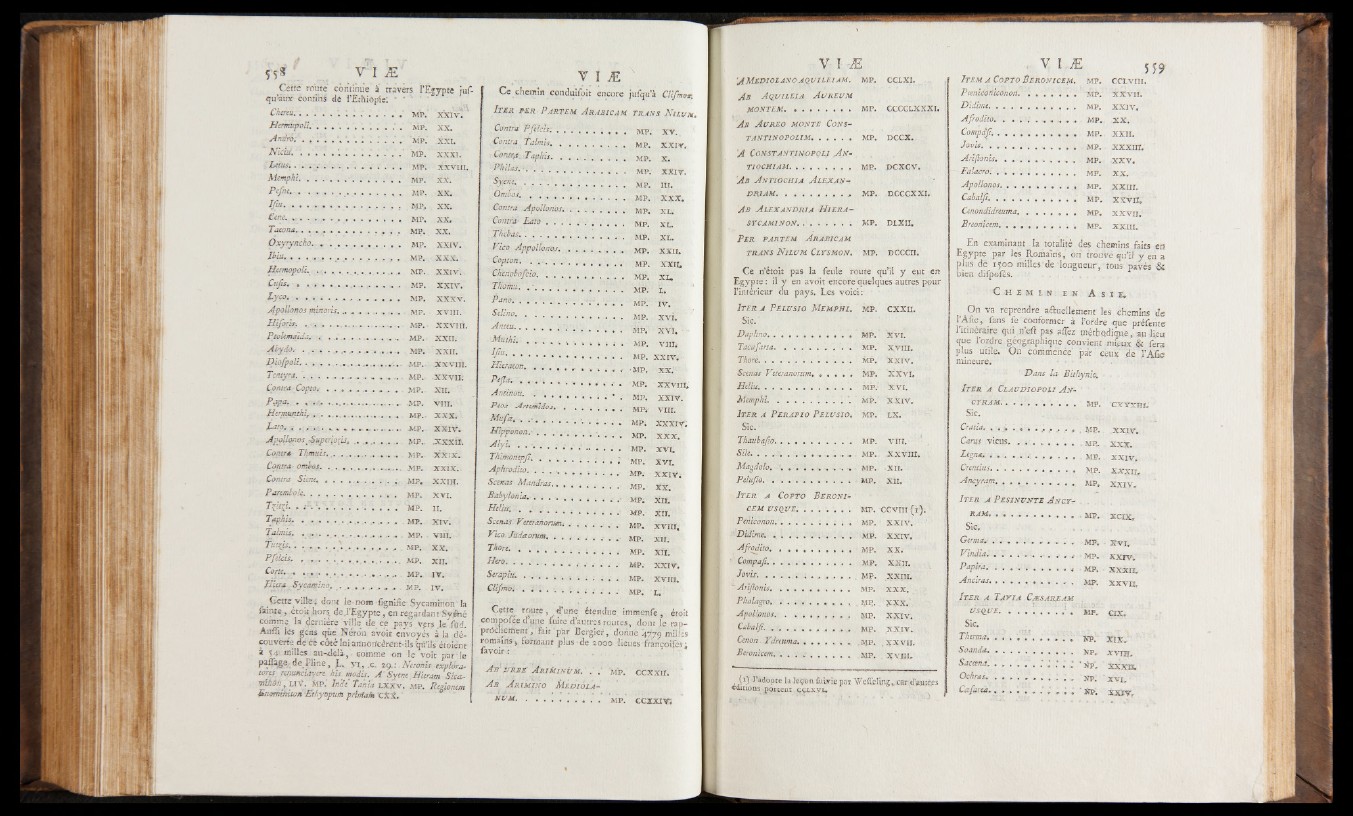 558 VIÆ
Cette route continue à travers l'Egypte jus-
qu'aux confins de l'Ethiopie.
Chereu. MP. XXIV.
Hermupoli. MP. XX.
Andro. MP. XXI.
Niciu. MP. XXXI.
Letus. MP. XXVIII.
Memphi. MP. XX.
Peme. MP. XX.
Isiu. MP. XX.
Cene. MP. XX.
Tacona. MP. XX.
Oxyryncho. MP. XXIV.
Ibiu. MP. XXX.
Hermopoli. MP. XXIV.
Cusis. MP. XXIV.
Lyco. MP. XXXV.
Apollonos minoris. MP. XVIII.
Hisoris. MP. XXVIII.
Ptolemaïda. MP. XXII.
Abydo. MP. XXII.
Diospoli. MP. XXVIII.
Tentyra. MP. XXVII.
Contra Copto. MP. XII.
Papa. MP. VIII.
Hermunthi. MP. XXX.
Lato. MP. XXIV.
Apollonos Superioris. MP. XXXII.
Contra Thmuis. MP. XXIX.
Contra ombos. MP. XXIX.
Contra Siene. MP. XXIII.
Parembole. MP. XVI.
Tzitzi. MP. II.
Taphis. MP. XIV.
Talmis. MP. VIII.
Tutzis. MP. XX.
Pselcis. MP. XII.
Corte. MP. IV.
Hiera Sycamino. MP. IV.
Cette ville, dont le nom signifie Sycaminon la
sainte, étoit hors de l'Egypte, en regardant Syène
comme la dernière ville de ce pays vers le sud.
Aussi les gens que Néron avoit envoyés à la dé-
couverte de ce côté lui annoncèrent-ils qu'ils étoient
à 54 milles au-delà, comme on le voit par le
passage de Pline, L. VI, c. 29: Neronis explora-
tores renunciavere his modis. A Syene Hieram Sica-
minon, LIV. MP. Inde Tania LXXV. MP. Regionem
Ethyopum primam CXX.
VIÆ
Ce chemin conduisoit encore jusqu'à Clismon.
ITER PER PARTEM ARABICAM TRANS NILUM.
Contra Pselcis. MP. XV.
Contra Talmis. MP. XXIV.
Contra Taphis. MP. X.
Philas. MP. XXIV.
Syene. MP. III.
Ombos. MP. XXX.
Contra Apollonos. MP. XL.
Contra Lato MP. XL.
Thebas. MP. XL.
Vico Appollonos. MP. XXII.
Copton. MP. XXII.
Chenoboscio. MP. XL.
Thomu. MP. L.
Pano. MP. IV.
Selino. MP. XVI.
Anteu. MP. XVI.
Muthi. MP. VIII.
Isiu. MP. XXIV.
Hieracon. MP. XX.
Pesla. MP. XXVIII.
Antinou. MP. XXIV.
Peos Artemidos. MP. VIII.
Musæ. MP. XXXIV.
Hipponon. MP. XXX.
Alyi. MP. XVI.
Thimonepsi. MP. XVI.
Aphrodito. MP. XXIV.
Scenas Mandras. MP. XX.
Babylonia. MP. XII.
Heliu. MP. XII.
Scenas Veteranorum. MP. XVIII.
Vico Judæorum. MP. XII.
Thore. MP. XII.
Hero. MP. XXIV.
Serapiu. MP. XVIII.
Clismos MP. L.
Cette route, d'une étendue immense, étoit
composée d'une suite d'autres routes, dont le rap-
prochement, fait par Bergier, donne 4779 milles
romains, formant plus de 2000 lieues françoises;
savoir:
AB URBE ARIMINUM. MP. CCXXII.
AB ARIMINO MEDIOLA-
NUM. MP. CCXXIV.
VIÆ
A MEDIOLANO AQUILEIAM. MP. CCLXI.
AB AQUILEIA AUREUM
MONTEM. MP. CCCCLXXXI.
AB AUREO MONTE CONS-
TANTINOPOLIM. MP. DCCX.
A CONSTANTINOPOLI AN-
TIOCHIAM. MP. DCXCV.
AB ANTIOCHIA ALEXAN-
DRIAM. MP. DCCCXXI.
AB ALEXANDRIA HIERA-
SYCAMINON. MP. DLXII.
PER PARTEM ARABICAM
TRANS NILUM CLYSMON. MP. DCCCII.
Ce n'étoit pas la seule route qu'il y eut en
Egypte: il y en avoit encore quelques autres pour
l'intérieur du pays. Les voici:
ITER A PELUSIO MEMPHI. MP. CXXII.
Sic.
Daphno. MP. XVI.
Tacasarta. MP. XVIII.
Thore. MP. XXIV.
Scenas Veteranorum. MP. XXVI.
Heliu. MP. XVI.
Memphi. MP. XXIV.
ITER A PERAPIO PELUSIO. MP. LX.
Sic.
Thaubasio. MP. VIII.
Sile. MP. XXVIII.
Magdolo. MP. XII.
Pelusio. MP. XII.
ITER A COPTO BERONI-
CEM USQUE. MP. CCVIII (1).
Peniconon. MP. XXIV.
Didime. MP. XXIV.
Afrodito. MP. XX.
Compasi. MP. XXII.
Jovis. MP. XXIII.
Aristonis. MP. XXX.
Phalagro. MP. XXX.
Apollonos. MP. XXIV.
Cabalsi. MP. XXIV.
Cenon Ydreuma. MP. XXVII.
Beronicem. MP. XVIII.
(1) J'adopte la leçon suivie par Wesseling, car d'autres
éditions portent CCLXVI.
VIÆ 559
ITEM A COPTO BERONICEM. MP. CCLVIII.
Poeniconiconon. MP. XXVII.
Didime. MP. XXIV.
Afrodito. MP. XX.
Compasi. MP. XXII.
Jovis. MP. XXXIII.
Aristonis. MP. XXV.
Falacro. MP. XX.
Apollonos. MP. XXIII.
Cabalsi. MP. XXVII.
Cenondidreuma. MP. XXVII.
Breonicem. MP. XXIII.
En examinant la totalité des chemins faits en
Egypte par les Romains, on trouve qu'il y en a
plus de 1500 milles de longueur, tous pavés &
bien disposés.
CHEMIN EN ASIE.
On va reprendre actuellement les chemins de
l'Asie, sans se conformer à l'ordre que présente
l'itinéraire qui n'est pas assez méthodique, au lieu
que l'ordre géographique convient mieux & sera
plus utile. On commence par ceux de l'Asie
mineure.
Dans la Bithynie.
ITER A CLAUDIOPOLI AN-
CYRAM. MP. CXXXIII.
Sic.
Cratia. MP. XXIV.
Carus vicus. MP. XXX.
Legna. MP. XXIV.
Crentius. MP. XXXII.
Ancyram. MP. XXIV.
ITER A PESINUNTE ANCY-
RAM. MP. XCIX.
Sic.
Germa. MP. XVI.
Vindia. MP. XXIV.
Papira. MP. XXXII.
Anciras. MP. XXVII.
ITER A TAVIA CÆSAREAM
USQUE. MP. CIX.
Sic.
Therma. NP. XIX.
Soanda. NP. XVIII.
Sacœna. NP. XXXII.
Ochras. NP. XVI.
Cæsarea. NP. XXIV.